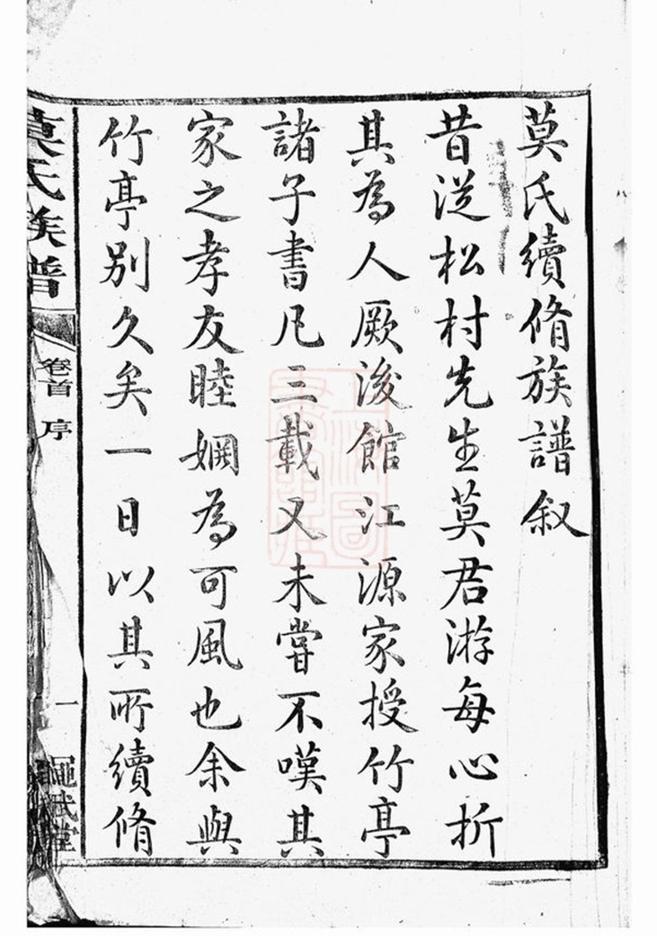 莫氏續脩族譜叙
昔從松村先生莫君游每心折
其為人厥後館江源家授竹亭
諸子書凡三載又未嘗不嘆其
家之孝友睦婣為可風也余與
竹亭別久矣一日以其所續脩
莫氏族譜
卷首 序
一